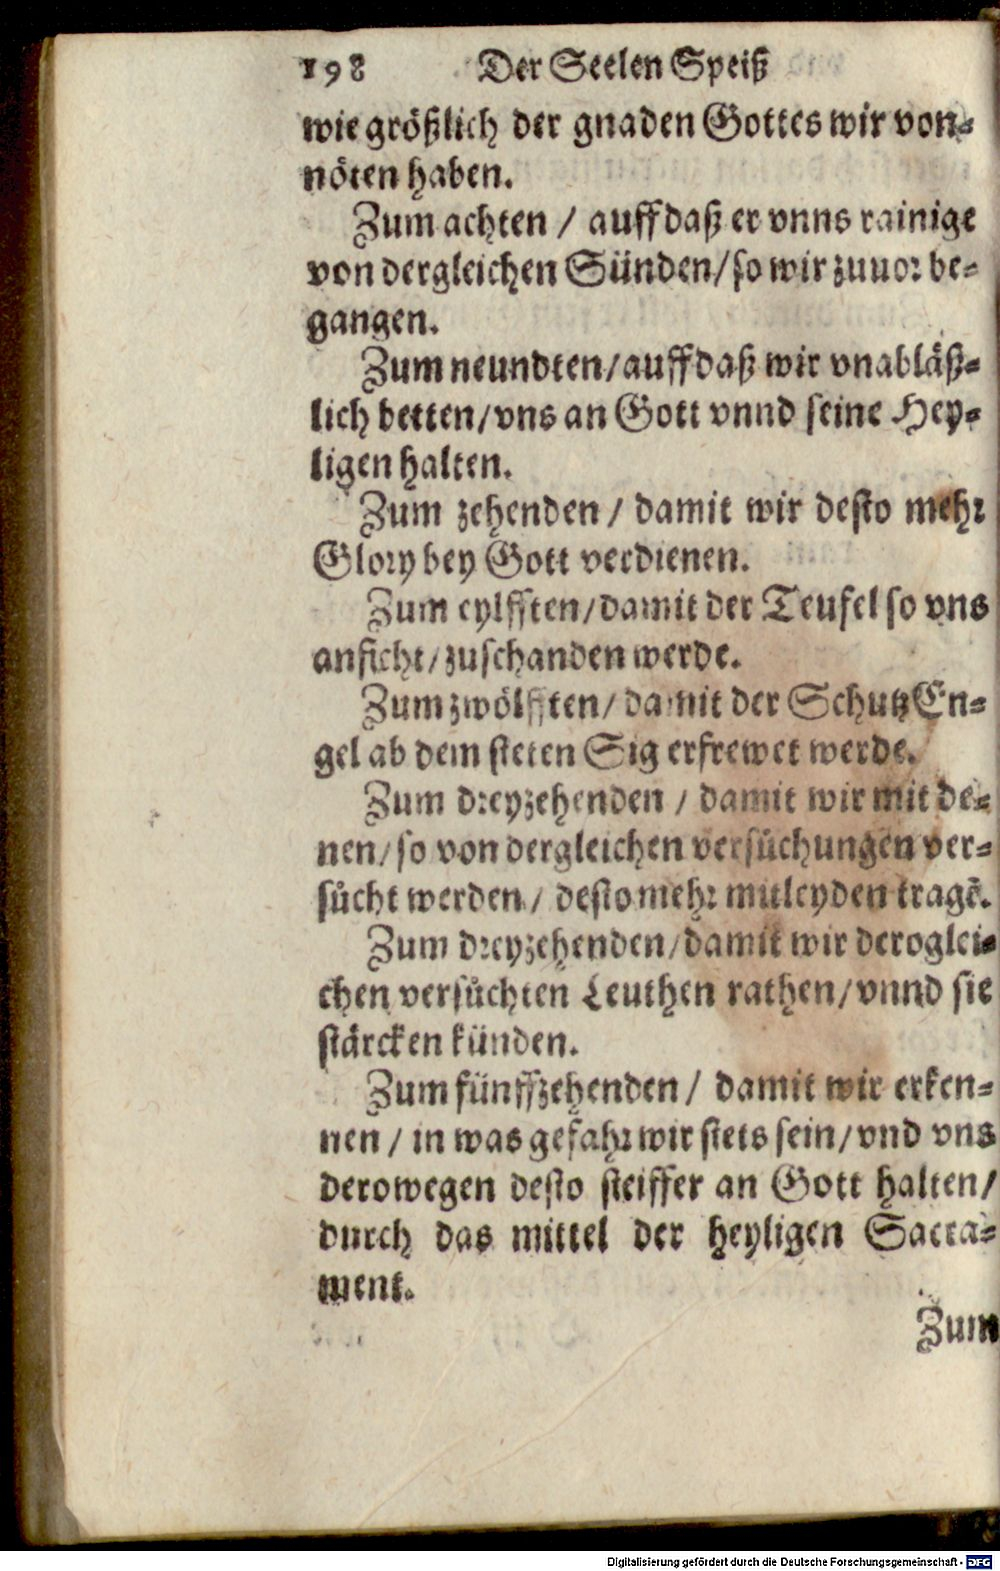 198 Der Seelen Speiß
wie größlich der gnaden Gottes wir von-
nöten haben.
Zum achten / auff daß er vnns rainige
von dergleichen Sünden / so wir zuuor be-
gangen.
Zum neundten / auff daß wir vnabläß-
lich betten / vns an Gott vnnd seine Hey-
ligen halten.
Zum zehenden / damit wir desto mehr
Glory bey Gott verdienen.
Zum eylfften / damit der Teufel so vns
anficht / zuschanden werde.
Zum zwölfften / damit der Schutz En-
gel ab dem steten Sig erfrewet werde.
Zum dreyzehenden / damit wir mit de-
nen / so von dergleichen versůchungen ver-
sůcht werden / desto mehr mitleyden tragẽ.
Zum dreyzehenden / damit wir deroglei-
chen versůchten Leuthen rathen / vnnd sie
stärcken künden.
Zum fünffzehenden / damit wir erken-
nen / in was gefahr wir stets sein / vnd vns
derowegen desto steiffer an Gott halten /
durch das mittel der heyligen Sacra-
ment.
Zum
Digitalisierung gefördert durch die Deutsche Forschungsgemeinschaft - DFG